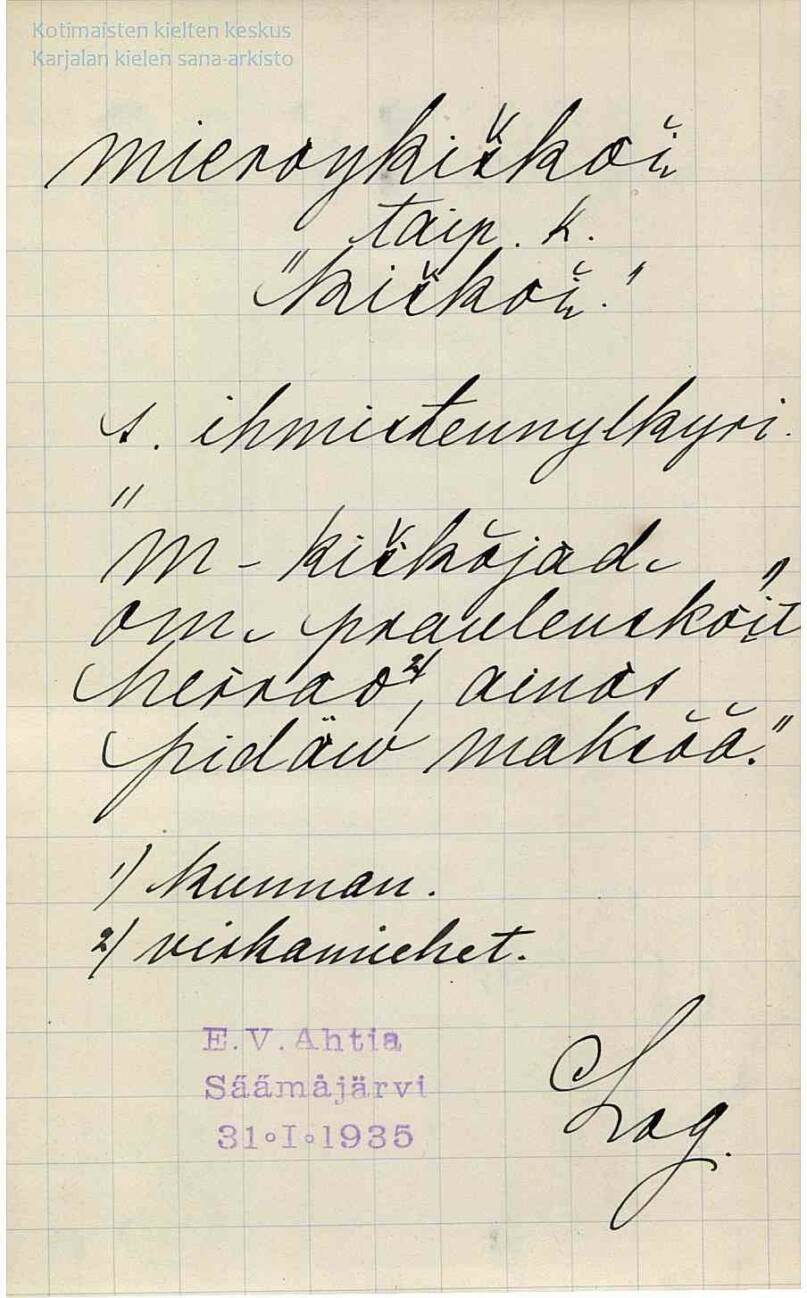 Kotimaisten kielten keskus
Karjalan kielen sana-arkisto
mieroŋkiškoi̮
taip. k.
"kiškoi̮."
s. ihmistennylkyri.
"m-kiškojad
om praulenskoi̮t ¹⁾
herrad ²⁾, ainos
pidäw maksoa."
1) kunnan.
2) virkamiehet.
E.V.Ahtia
Säämäjärvi
31.I.1935